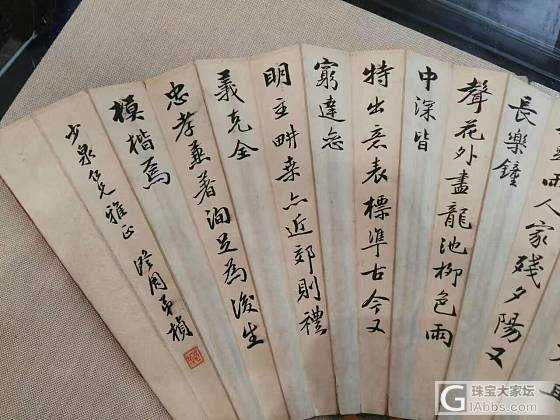 雨人家殘夕陽又
長樂鐘
聲花外盡龍池柳色雨
中深皆
特出意表標準古今又
窮達恋
明主畊桒亦近郊則禮
義克全
忠孝兼著洵足為後生
模楷焉
少泉仁兄雅正 弟楨
珠宝大家坛
GIAbbs.com